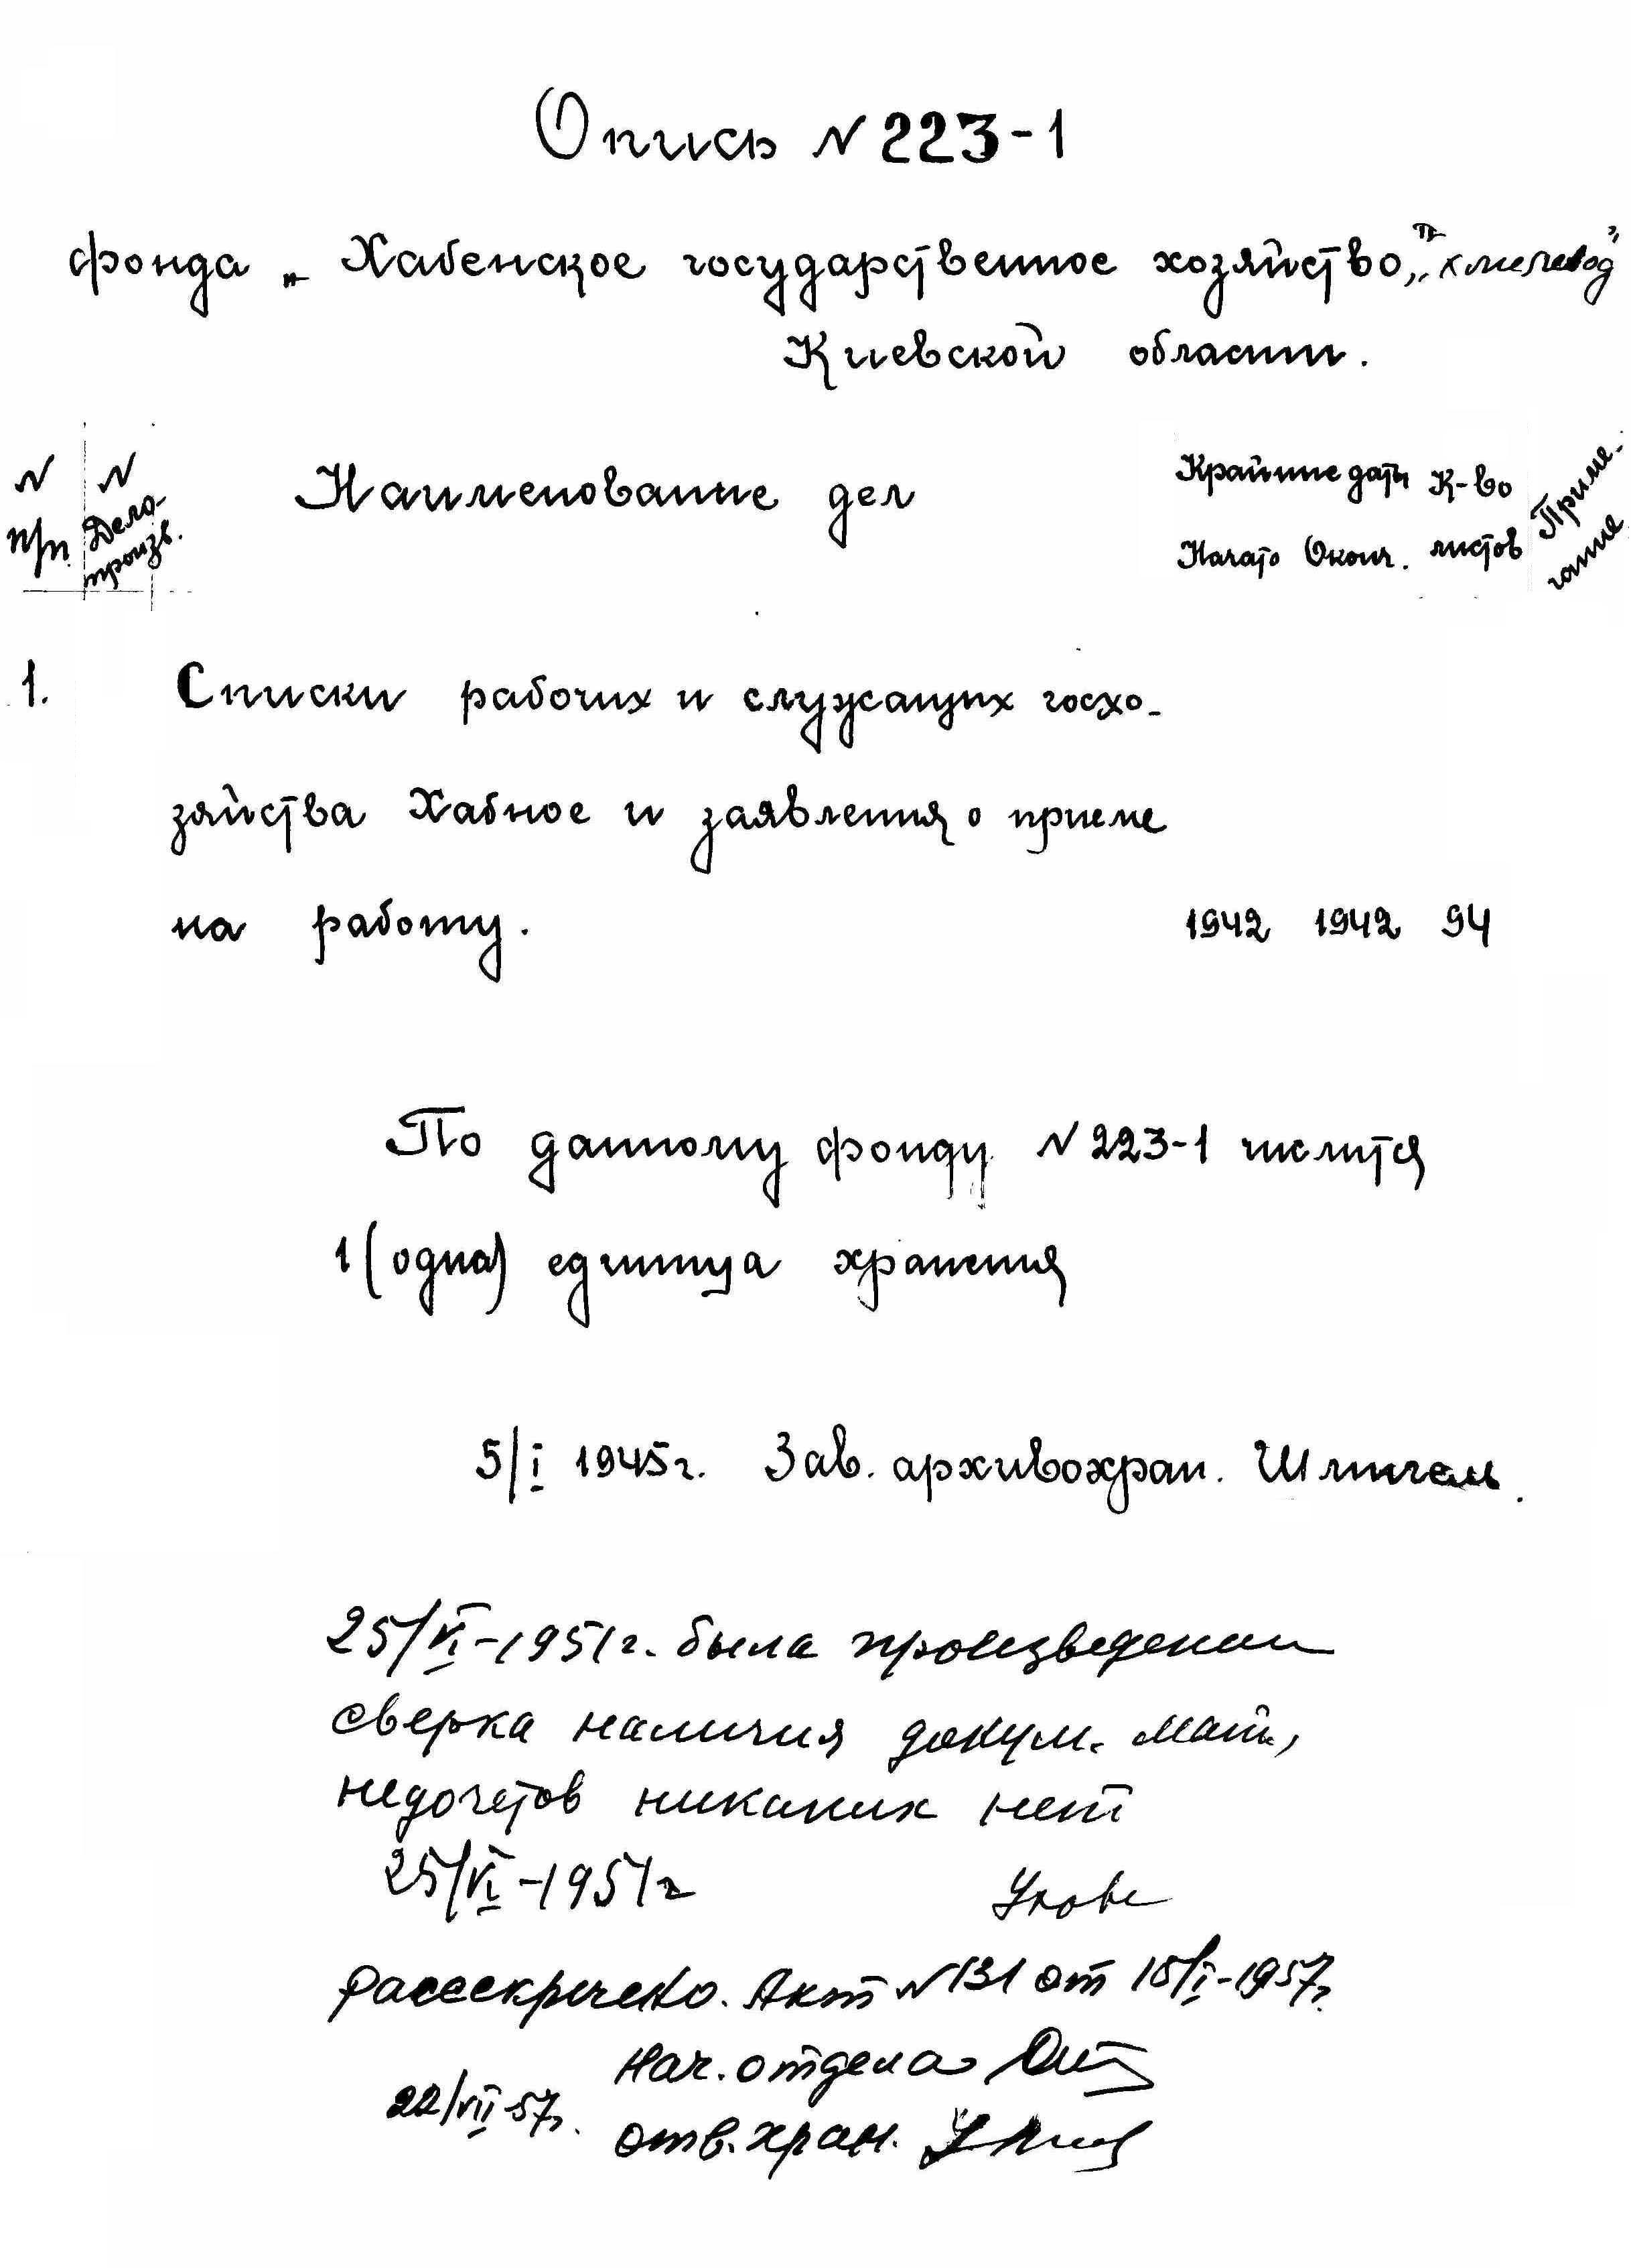 Опись N 223-1
фонда „Хабенское государственное хозяйство „хмелевод"
Киевской области.
N п/п N Дело-произв. Наименование дел Крайние даты К-во Приме-
Начато Оконч. листов чание
1. Списки рабочих и служащих госхо-
зяйства Хабное и заявления о приеме
на работу. 1942 1942 94
По данному фонду N 223-1 числится
1 (одна) единица хранения
5/I 1945 г. Зав. архивохран.
25/VI-1951 г. была произведена
сверка наличия докум. мат.,
недочетов никаких нет
25/VI-1951 г
Рассекречено. Акт N 131 от 15/I-1957 г.
Нач. отдела
22/VII 57 г.
отв. хран.